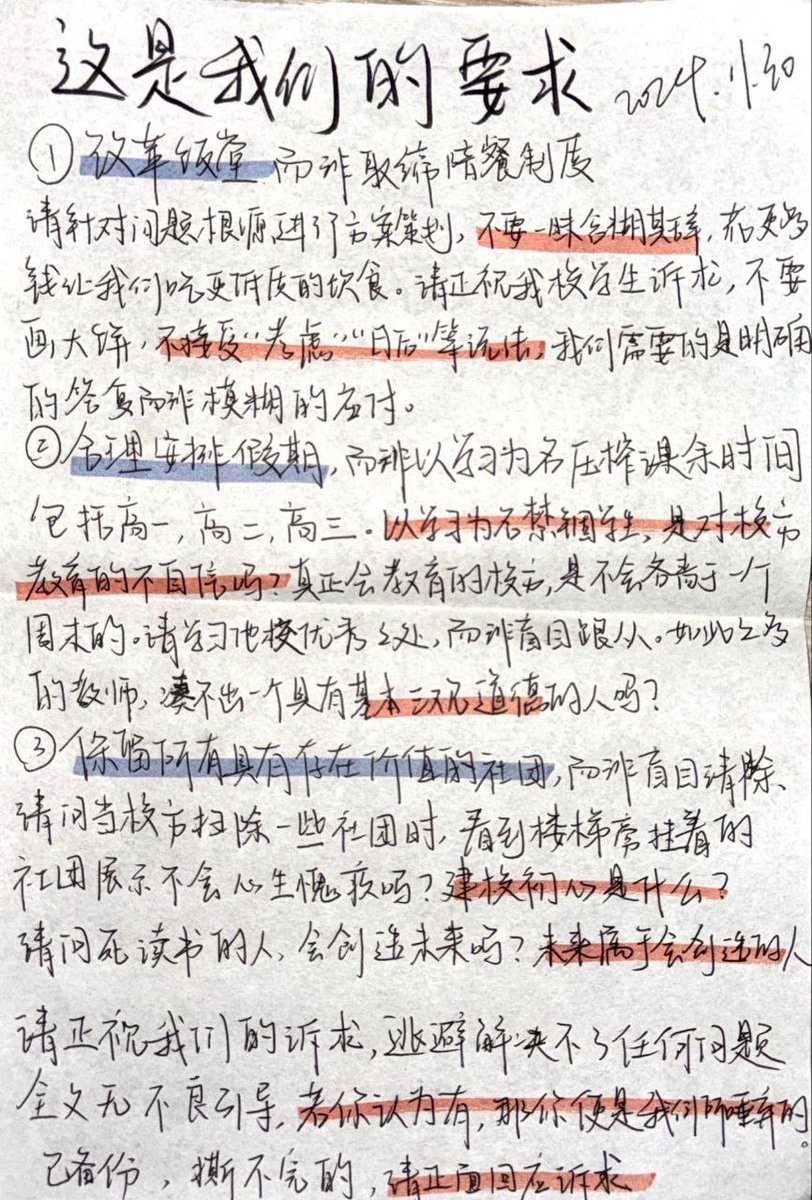 这是我们的要求 2024.11.30
① 改革饭堂 而非取缔陪餐制度
请针对问题根源进行方案策划，不要一味含糊其辞，花更多
钱让我们吃更低质的饮食。请正视我校学生诉求，不要
画大饼，不接受“考虑”“日后”等说法，我们需要的是明确
的答复而非模糊的应付。
② 合理安排假期，而非以学习为名压榨课余时间
包括高一，高二，高三。以学习为名禁锢学生，是对校方
教育的不自信吗？真正会教育的校方，是不会吝啬于一个
周末的。请学习他校优秀之处，而非盲目跟从。如此之多
的教师，凑不出一个具有基本二观道德的人吗？
③ 保留所有具有存在价值的社团，而非盲目清除、
请问当校方扫除一些社团时，看到楼梯旁挂着的
社团展示不会心生愧疚吗？建校初心是什么？
请问死读书的人，会创造未来吗？未来属于会创造的人
请正视我们的诉求，逃避解决不了任何问题
全文无不良引导，若你认为有，那你便是我们所唾弃的。
已备份，撕不完的，请正面回应诉求